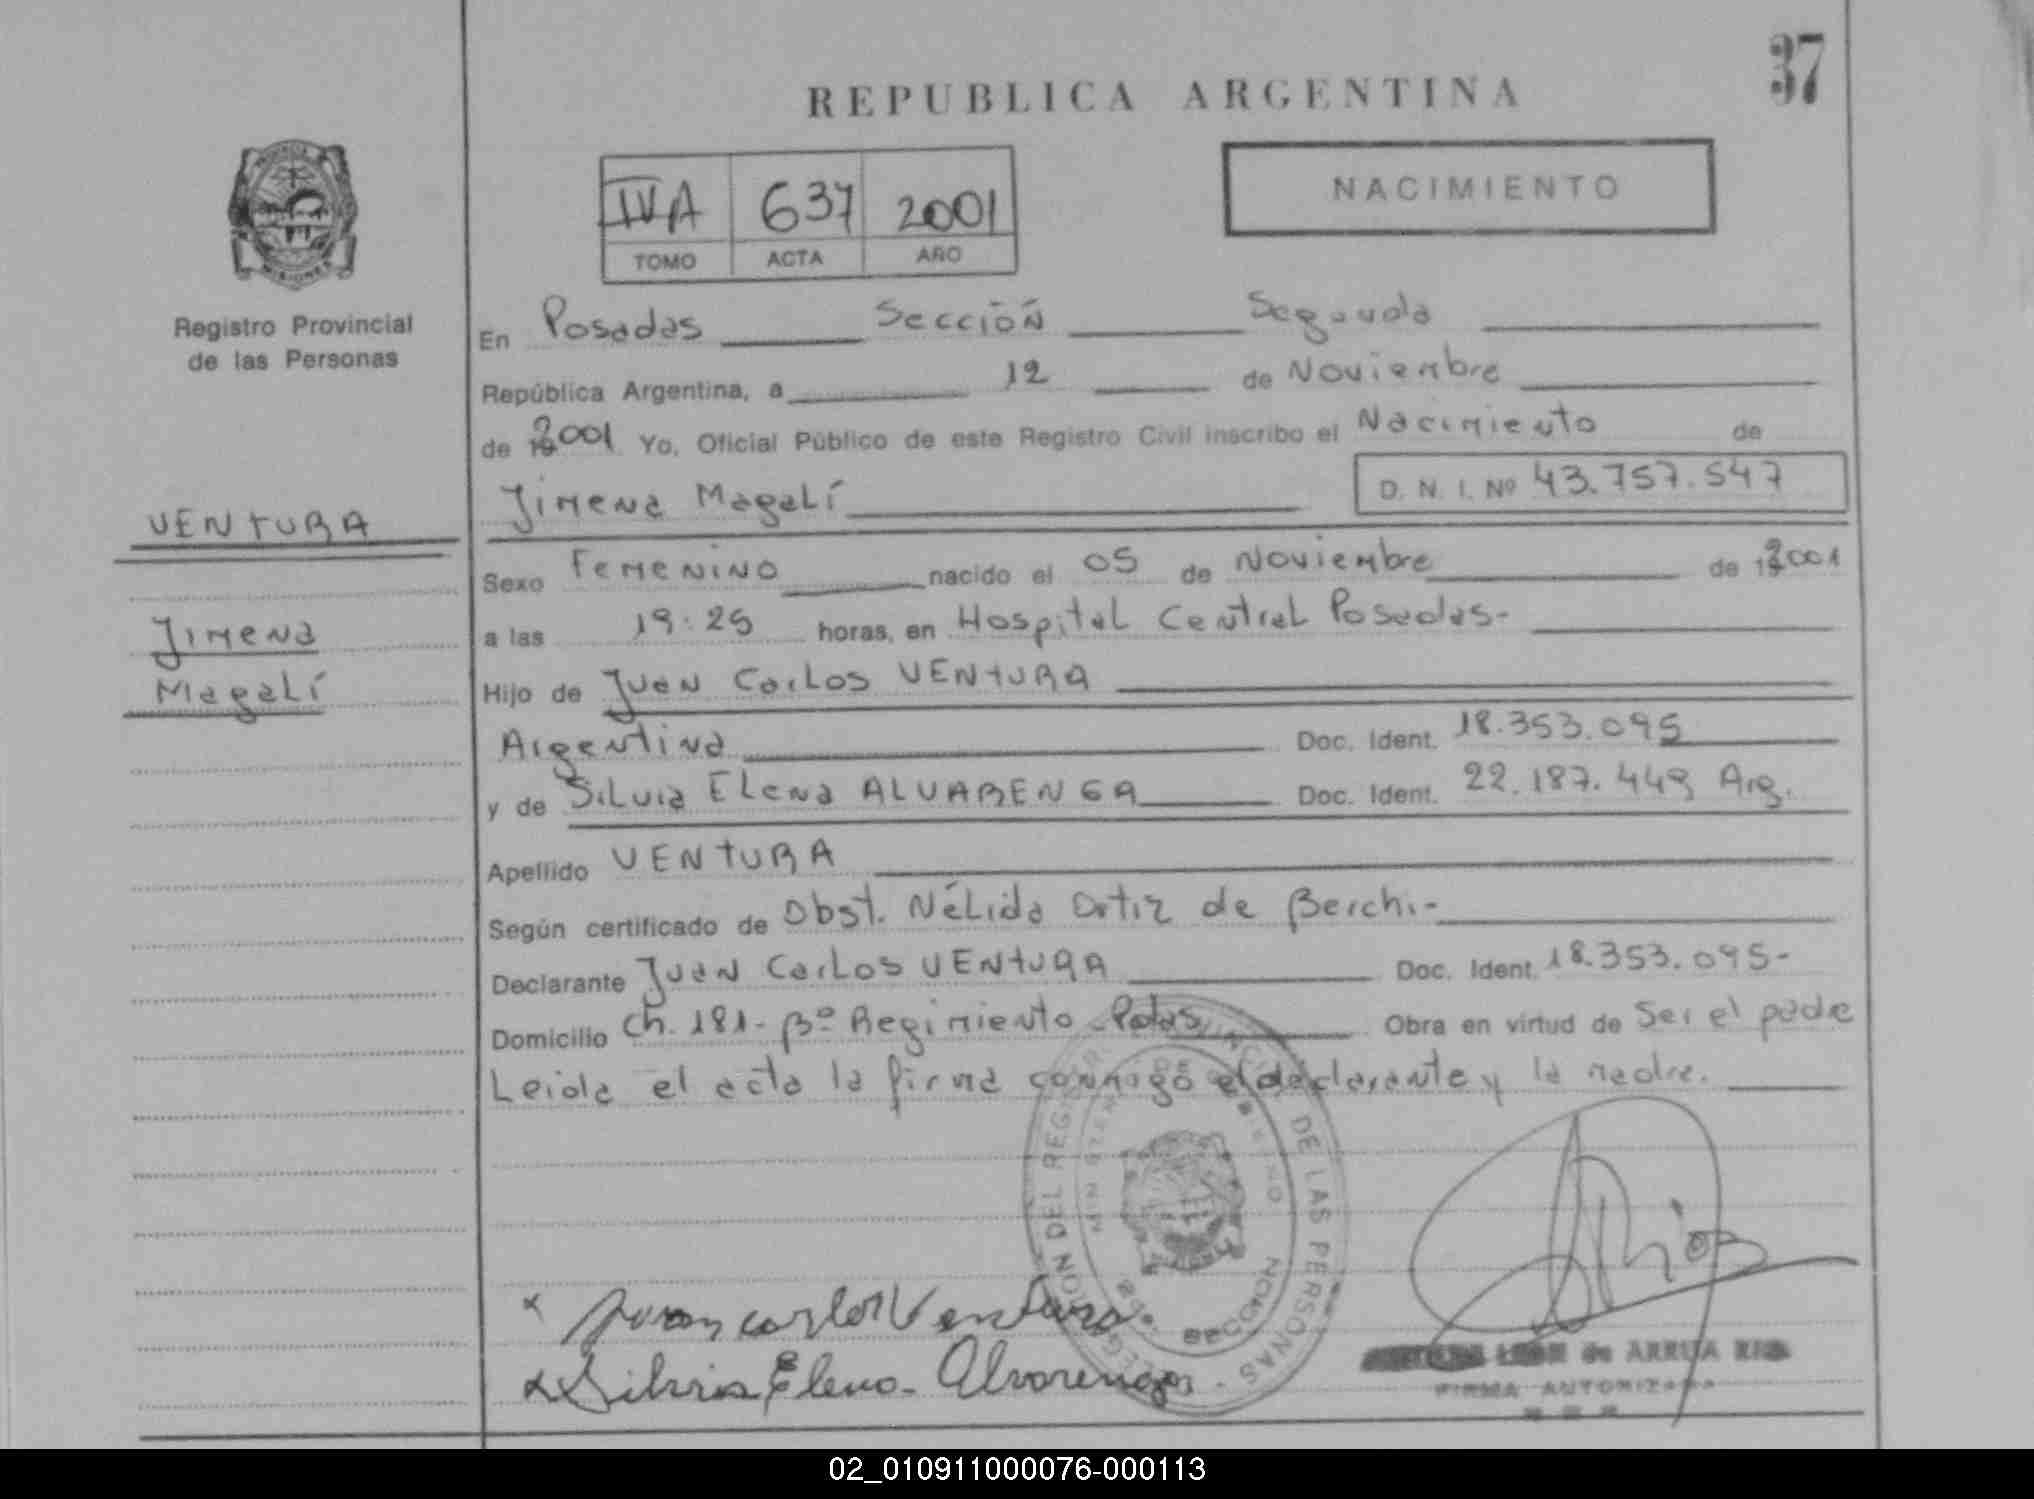 37
REPUBLICA ARGENTINA
NACIMIENTO
IVA 637 2001
TOMO ACTA AÑO
Registro Provincial
de las Personas
En Posadas Sección Segunda
República Argentina, a 12 de Noviembre
de 2001 Yo, Oficial Público de este Registro Civil inscribo el Nacimiento de
Jimena Magalí D. N. I. Nº 43.757.547
VENTURA
Jimena
Magalí
Sexo Femenino nacido el 05 de Noviembre de 2001
a las 19:25 horas, en Hospital Central Posadas-
Hijo de Juan Carlos VENTURA
Argentina Doc. Ident. 18.353.095
y de Silvia Elena ALVARENGA Doc. Ident. 22.187.449 Arg.
Apellido VENTURA
Según certificado de Obst. Nélida Ortiz de Berchi-
Declarante Juan Carlos VENTURA Doc. Ident. 18.353.095-
Domicilio Ch. 181- Bº Regimiento Pdas Obra en virtud de Ser el padre
Leida el acta la firma conmigo el declarante y la madre.
DELEGACION DEL REGISTRO PROVINCIAL DE LAS PERSONAS
MINISTERIO DE GOBIERNO
2da. SECCION
Juan carlos Ventura
Silvia Elena Alvarenga
Rios
de ARRUA
FIRMA AUTORIZADA
02_010911000076-000113